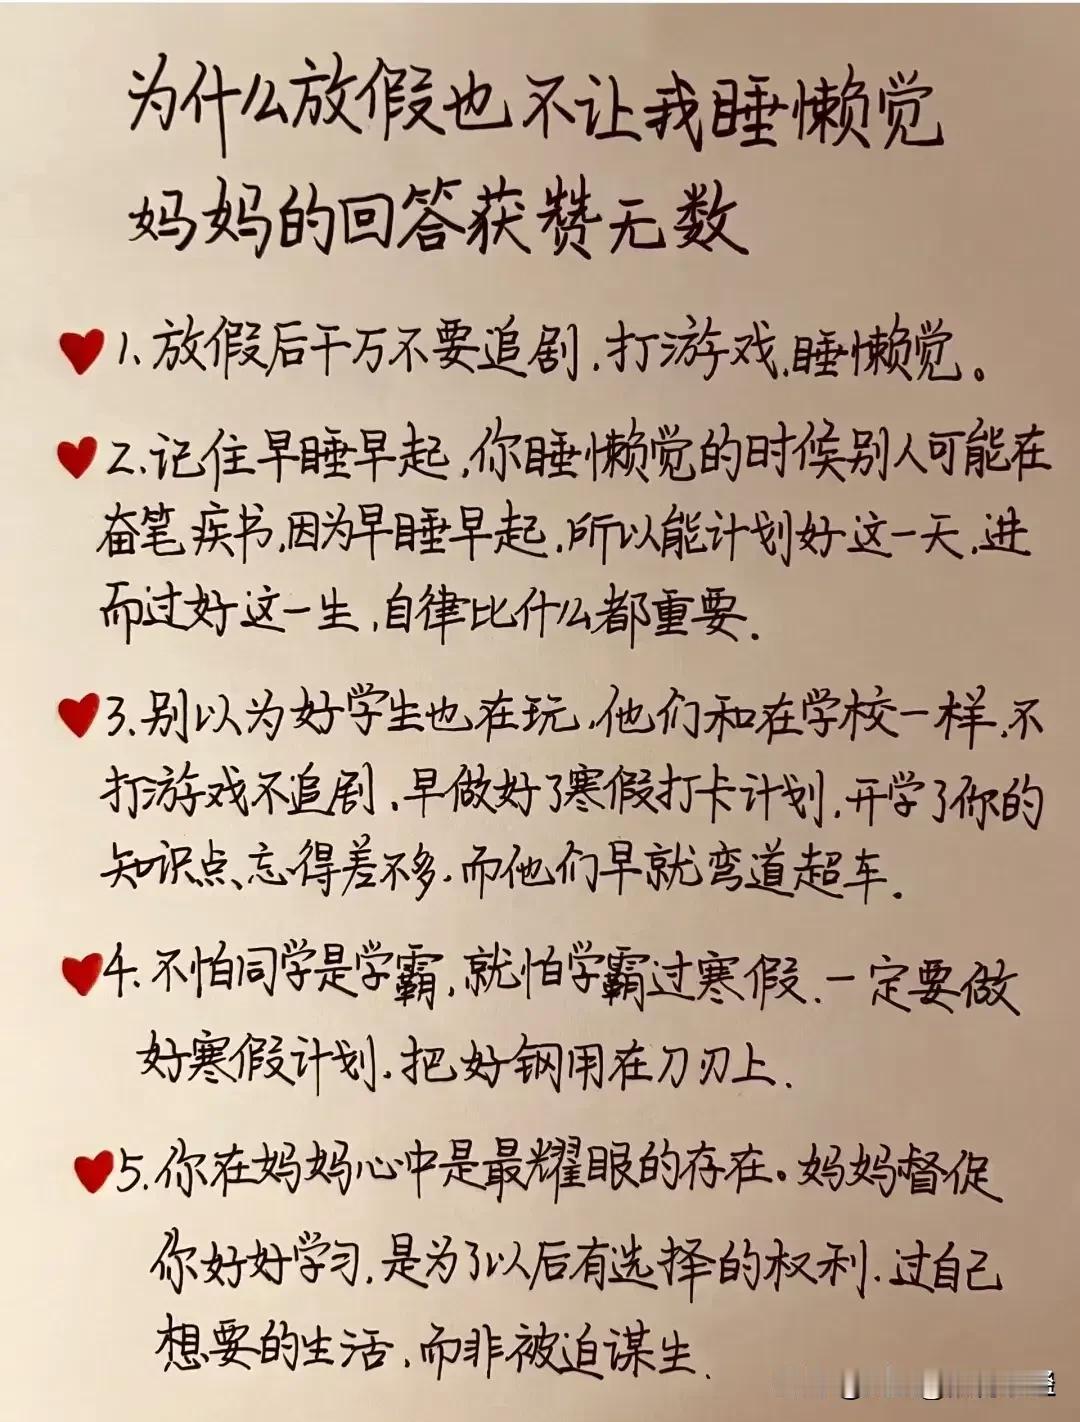 为什么放假也不让我睡懒觉
妈妈的回答获赞无数
1.放假后千万不要追剧.打游戏.睡懒觉。
2.记住早睡早起.你睡懒觉的时候别人可能在
奋笔疾书.因为早睡早起.所以能计划好这一天.进
而过好这一生.自律比什么都重要.
3.别以为好学生也在玩.他们和在学校一样.不
打游戏不追剧.早做好了寒假打卡计划.开学了你的
知识点、忘得差不多.而他们早就弯道超车.
4.不怕同学是学霸.就怕学霸过寒假.一定要做
好寒假计划.把好钢用在刀刃上.
5.你在妈妈心中是最耀眼的存在。妈妈督促
你好好学习.是为了以后有选择的权利.过自己
想要的生活.而非被迫谋生.